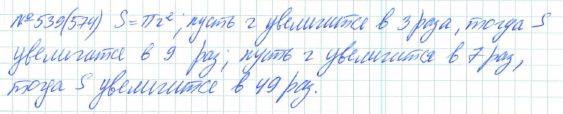 №539(574) S=πr²; пусть r увеличится в 3 раза, тогда S
увеличится в 9 раз; пусть r увеличится в 7 раз,
тогда S увеличится в 49 раз.